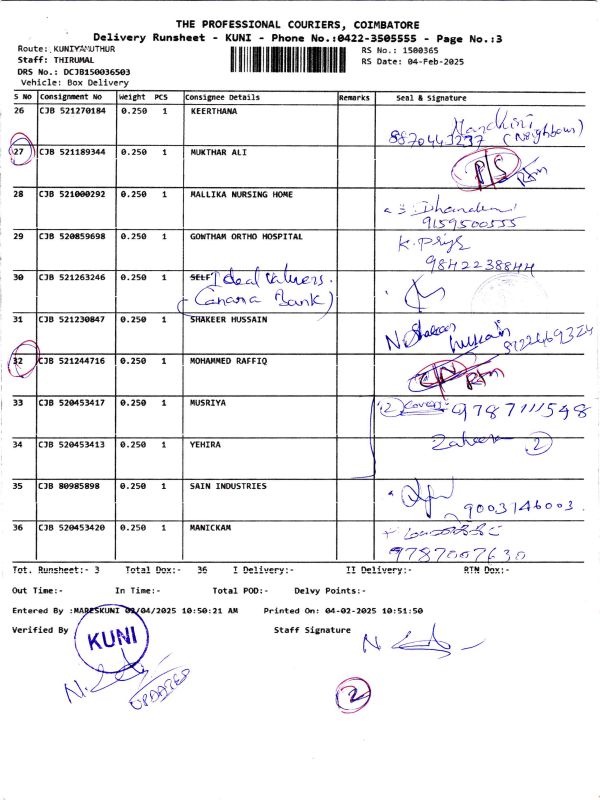 THE PROFESSIONAL COURIERS, COIMBATORE
Delivery Runsheet - KUNI - Phone No.:0422-3505555 - Page No.:3
Route: KUNIYAMUTHUR RS No.: 1500365
Staff: THIRUMAL RS Date: 04-Feb-2025
DRS No.: DCJB150036503
Vehicle: Box Delivery
S No Consignment No Weight PCS Consignee Details Remarks Seal & Signature
26 CJB 521270184 0.250 1 KEERTHANA
8870443237 (Neighbour)
27 CJB 521189344 0.250 1 MUKTHAR ALI
P/S RTM
28 CJB 521000292 0.250 1 MALLIKA NURSING HOME
9159500555
29 CJB 520859698 0.250 1 GOWTHAM ORTHO HOSPITAL K. Priya
9842238844
30 CJB 521263246 0.250 1 SELF Ideal valuers.
(Canara Bank)
31 CJB 521230847 0.250 1 SHAKEER HUSSAIN
N. Shakeer Hussain 8122469324
32 CJB 521244716 0.250 1 MOHAMMED RAFFIQ
RTM
33 CJB 520453417 0.250 1 MUSRIYA (2) Cover 9787111548
34 CJB 520453413 0.250 1 YEHIRA Zaheera (2)
35 CJB 80985898 0.250 1 SAIN INDUSTRIES
9003146003
36 CJB 520453420 0.250 1 MANICKAM
9787007630
Tot. Runsheet:- 3 Total Dox:- 36 I Delivery:- II Delivery:- RTN Dox:-
Out Time:- In Time:- Total POD:- Delvy Points:-
Entered By :MARESKUNI 02/04/2025 10:50:21 AM Printed On: 04-02-2025 10:51:50
Verified By Staff Signature
KUNI
UPDATED
2